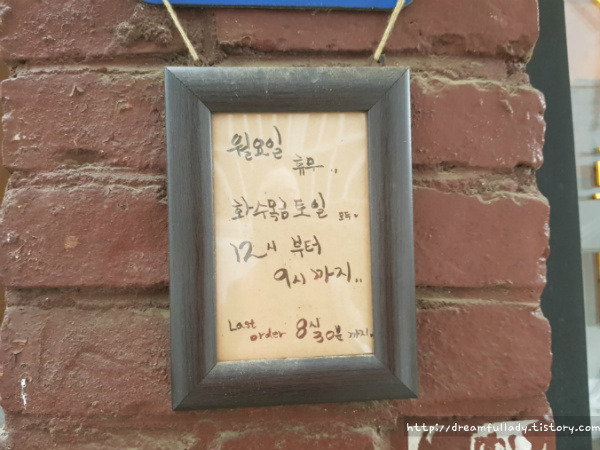 월요일
휴무..
화수목금토일 모두.
12시 부터
9시 까지..
Last
order 8시
30분 까지.
http://dreamfullady.tistory.com